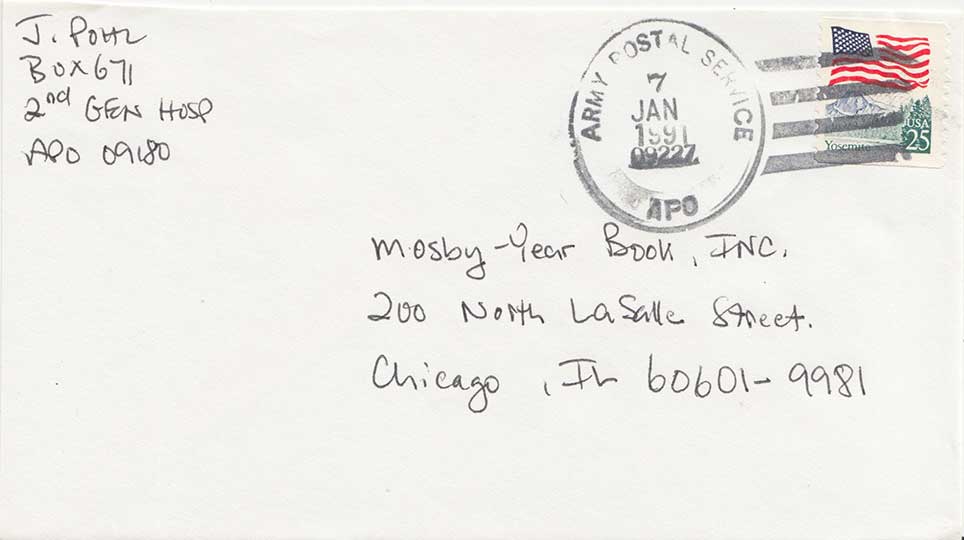 J. Pohl
Box 671
2nd Gen Hosp
APO 09180
ARMY POSTAL SERVICE
7
JAN
1991
09227
APO
USA
25
Yosemite
Mosby-Year Book, INC.
200 North LaSalle Street.
Chicago, IL 60601-9981